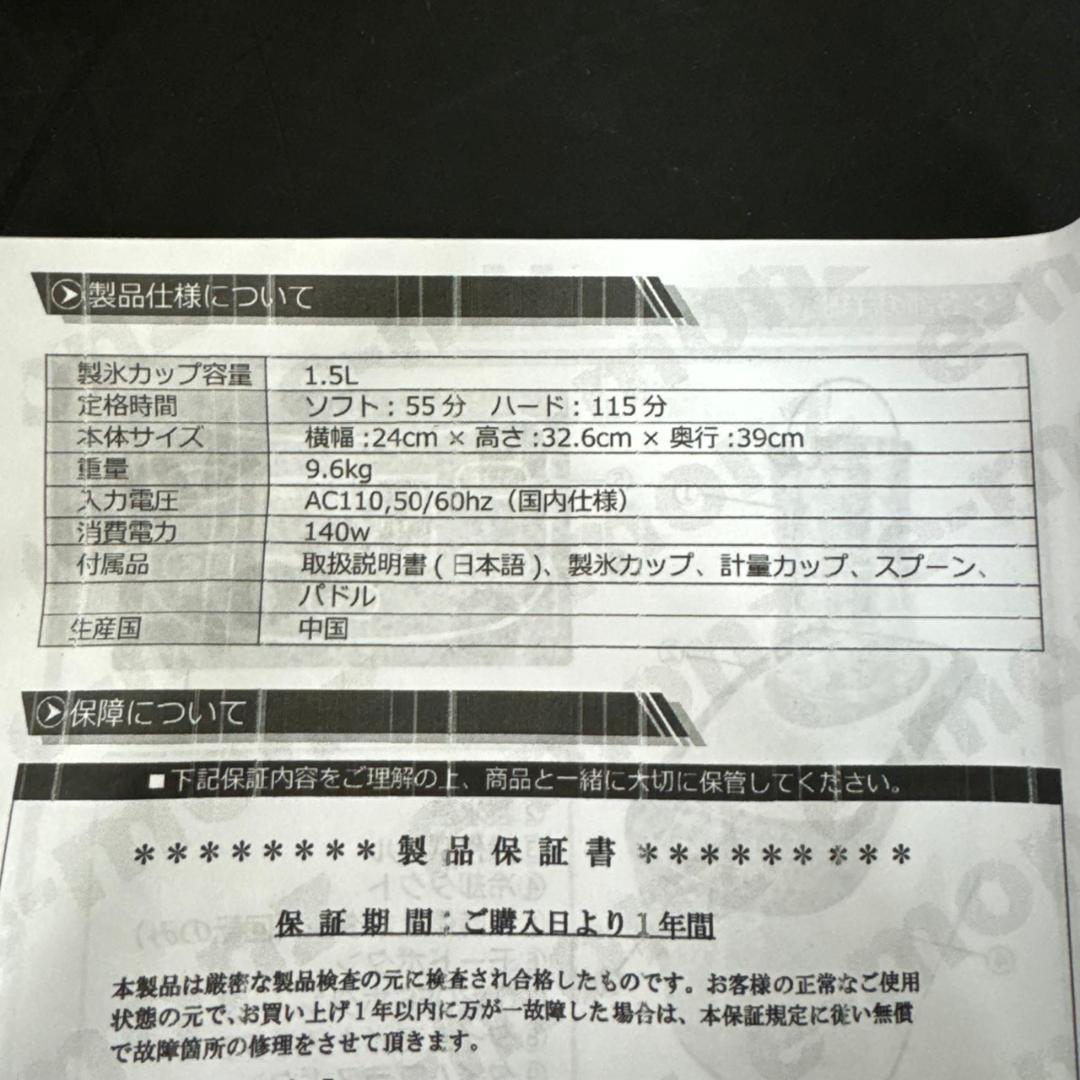 製品仕様について
製氷カップ容量 1.5L
定格時間 ソフト：55分 ハード：115分
本体サイズ 横幅:24cm × 高さ:32.6cm × 奥行:39cm
重量 9.6kg
入力電圧 AC110,50/60hz（国内仕様）
消費電力 140w
付属品 取扱説明書(日本語)、製氷カップ、計量カップ、スプーン、
パドル
生産国 中国
保障について
■下記保証内容をご理解の上、商品と一緒に大切に保管してください。
＊＊＊＊＊＊＊＊ 製品保証書 ＊＊＊＊＊＊＊＊＊
保証期間：ご購入日より1年間
本製品は厳密な製品検査の元に検査され合格したものです。お客様の正常なご使用
状態の元で、お買い上げ1年以内に万が一故障した場合は、本保証規定に従い無償
で故障箇所の修理をさせて頂きます。